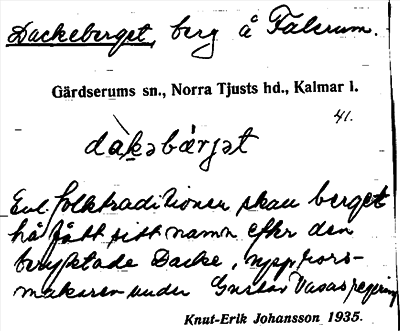 Dackeberget, berg å Falerum.
Gärdserums sn., Norra Tjusts hd., Kalmar l.
41.
dàkəbær̀jət
Enl. folktraditionen skall berget
ha fått sitt namn efter den
beryktade Dacke, uppror-
makaren under Gustav Vasas regering
Knut-Erik Johansson 1935.